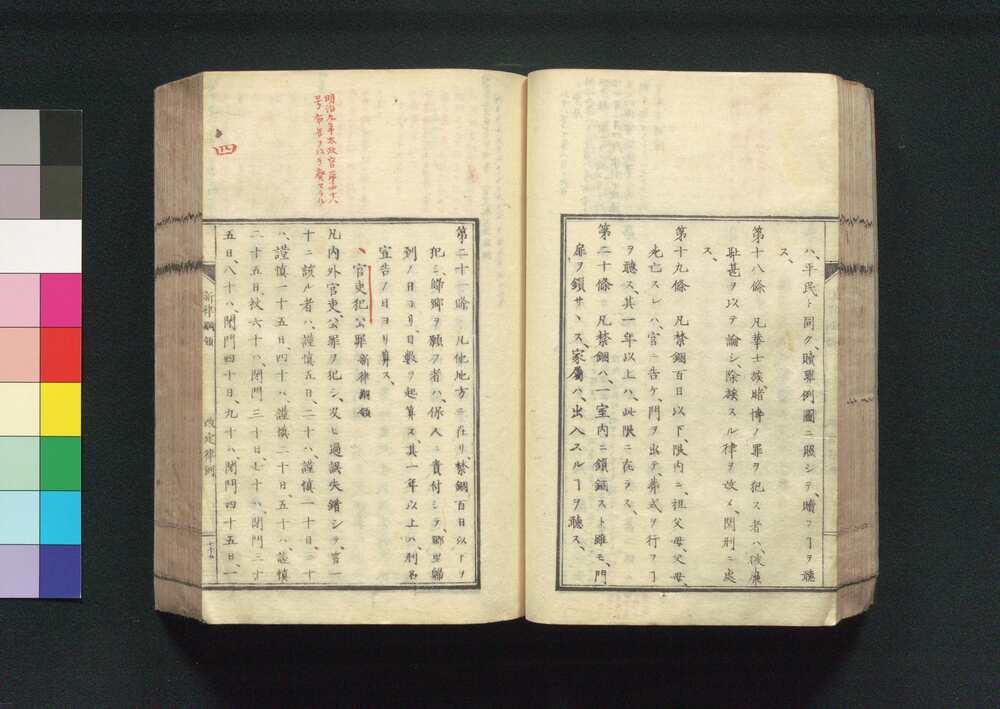 ハ、平民ト同ク、贖罪例圖ニ照シテ、贖フヿヲ聴
ス、
第十八條 凡華士族、賭博ノ罪ヲ犯ス者ハ、
耻甚ヲ以テ論シ、除族スル律ヲ改メ、閏刑ニ處
ス、
第十九條 凡禁錮百日以下、限内ニ、祖父母、父母、
死亡スレハ、官ニ告ケ、門ヲ出テ、葬式ヲ行フヿ
ヲ聴ス、其一年以上ハ、此限ニ在ラス、
第二十條 凡禁錮ハ、一室内ニ鎖錮スト雖モ、門
扉ヲ鎖サヽス、家屬ハ、出入スルヿヲ聴ス、
第二十一條 凡他地方ニ在リ、禁錮百日以下ヲ
犯シ、歸郷ヲ願フ者ハ、保人ニ責付シテ、郷里歸
到ノ日ヨリ、日數ヲ起算ス、其一年以上ハ、刑名
宣告ノ日ヨリ算ス、
官吏犯公罪 新律綱領
凡内外官吏、公罪ヲ犯シ、及ヒ過誤失錯シテ、笞一
十ニ該ル者ハ、謹慎五日、二十ハ、謹慎一十日、三十
ハ、謹慎一十五日、四十ハ、謹慎二十日、五十ハ、謹慎
二十五日、杖六十ハ、閉門三十日、七十ハ、閉門三十
五日、八十ハ、閉門四十日、九十ハ、閉門四十五日、一
明治九年太政官第四十八
号布告ヲ以テ廢セラル
四
新律綱領 改定律例